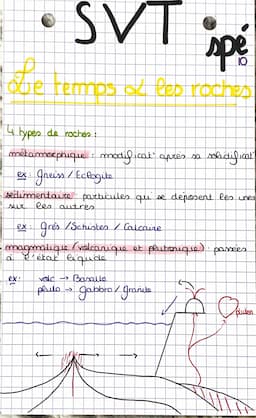 SVT
spé
10
Le temps & les roches
4 types de roches :
métamorphique : modificat° après sa solidificat°
ex : Gneiss / Eclogite
sédimentaire : particules qui se déposent les unes
sur les autres
ex : Grés / Schistes / Calcaire
magmatique (volcanique et plutonique) : passées
à l'état liquide
ex : volc → Basalte
pluto → Gabbro / granite